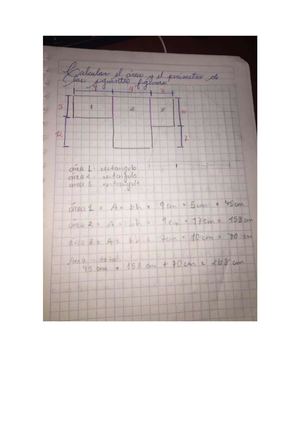 Calcular el area y el perimetro de
las siguientes figuras
1 2
5
12
area 1 = rectangulo
area 2 = rectangulo
area 3 = rectangulo
area 1 = A = b.h = 9 cm × 5 cm = 45 cm
area 2 = A = b.h = 9 cm × 17 cm = 153 cm
area 3 = A = b.h = 7 cm × 10 cm = 70 cm
Area total
45 cm + 153 cm + 70 cm = 268 cm